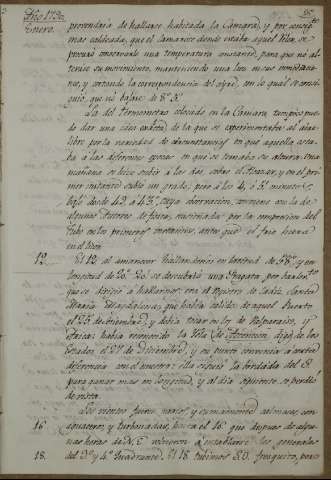 Año 1790.
Enero.
provendria de hallarse habitada la Camara, y por consig.te
mas calidéada, que el camarote donde estaba aquel Relox, se
procuró conservarle una temperatura constante, para que no al-
terase su movimiento, manteniendo una luz
y cortando la correspondencia del ayre, con lo qual se consi-
guió, que no bajase de 8° 5'.
La del termometro colocado en la Camara tampoco pue-
de dar una idea exacta de la que se experimentaba al aire
libre por la variedad de circunstancias en que aquella esta-
ba á las diferentes epocas en que se tomaba su altura: una
mañana se hizo subir á las dos al Alcazar, y en el pri-
mer instante subió un grado; pero á los 4, ó 5 minutos,
bajó desde 43 á 43,5, cuya observacion, conviene con la de
algunos Autores de fisica, ocasionada por la compresion del
tubo en los primeros instantes, antes que el frio haga
en el licor.
12. El 12 al amanecer hallandonos en latitud de 38°, y en
longitud de 20° 20' se descubrió una Fragata, por haler
que se dirigió a hablarnos, era el Registro de Cadiz, Santa
Maria Magdalena, que habia salido de aquel Puerto
el 25 de Octubre, y debia tocar en los de Valparaiso, y
Arica: habia reconocido la Isla de Trinidad, digo, de los
Estados, el 27 de Diciembre, y su punto convenia á corta
diferencia con el nuestro: ella siguió la bordada del S.
para ganar mas en longitud, y al dia siguiente se perdió
de vista.
Los vientos fueron varios, y sumamente calmosos, con
16. aguaceros y turbonadas, hasta el 16 que despues de algu-
nas horas de N.E. volvieron á entablarse los generales
18. del 3.o y 4.o Quadrante. El 18 tubimos S.O. fresquito, pero